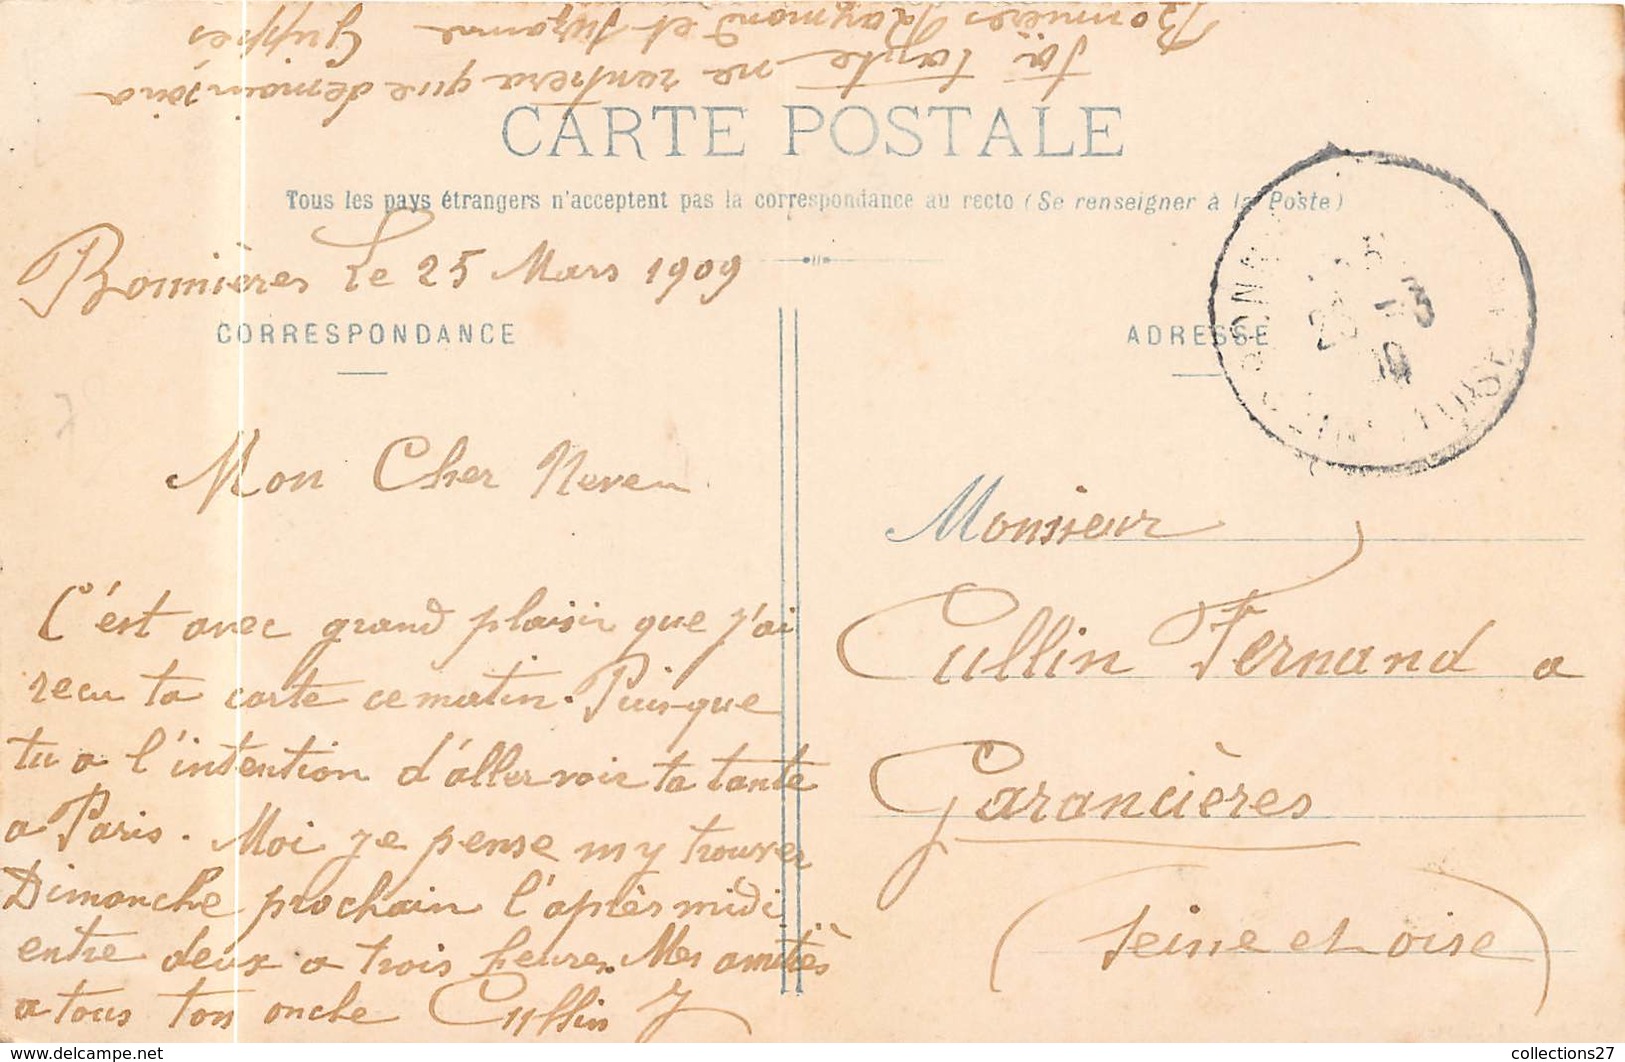 Ta tante ne rentrera que demain soir
Bonnières Raymond et Suzanne
CARTE POSTALE
Tous les pays étrangers n'acceptent pas la correspondance au recto (Se renseigner à la Poste)
Bonnières le 25 Mars 1909
CORRESPONDANCE
Mon Cher Neveu
C'est avec grand plaisir que j'ai
recu ta carte ce matin. Puisque
tu a l'intention d'aller voir ta tante
a Paris. Moi je pense my trouver
Dimanche prochain l'après midi
entre deux a trois heures. Mes amitiès
a tous ton oncle Cullin J
ADRESSE
Monsieur
Cullin Fernand a
Garancières
(Seine et oise)
www.delcampe.net
collections27